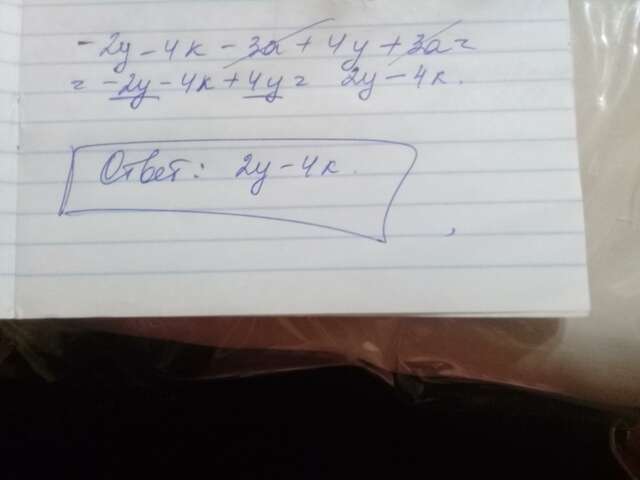 -2y-4к-3a+4y+3a=
=-2y-4к+4y= 2y-4к.
Ответ: 2y-4к.